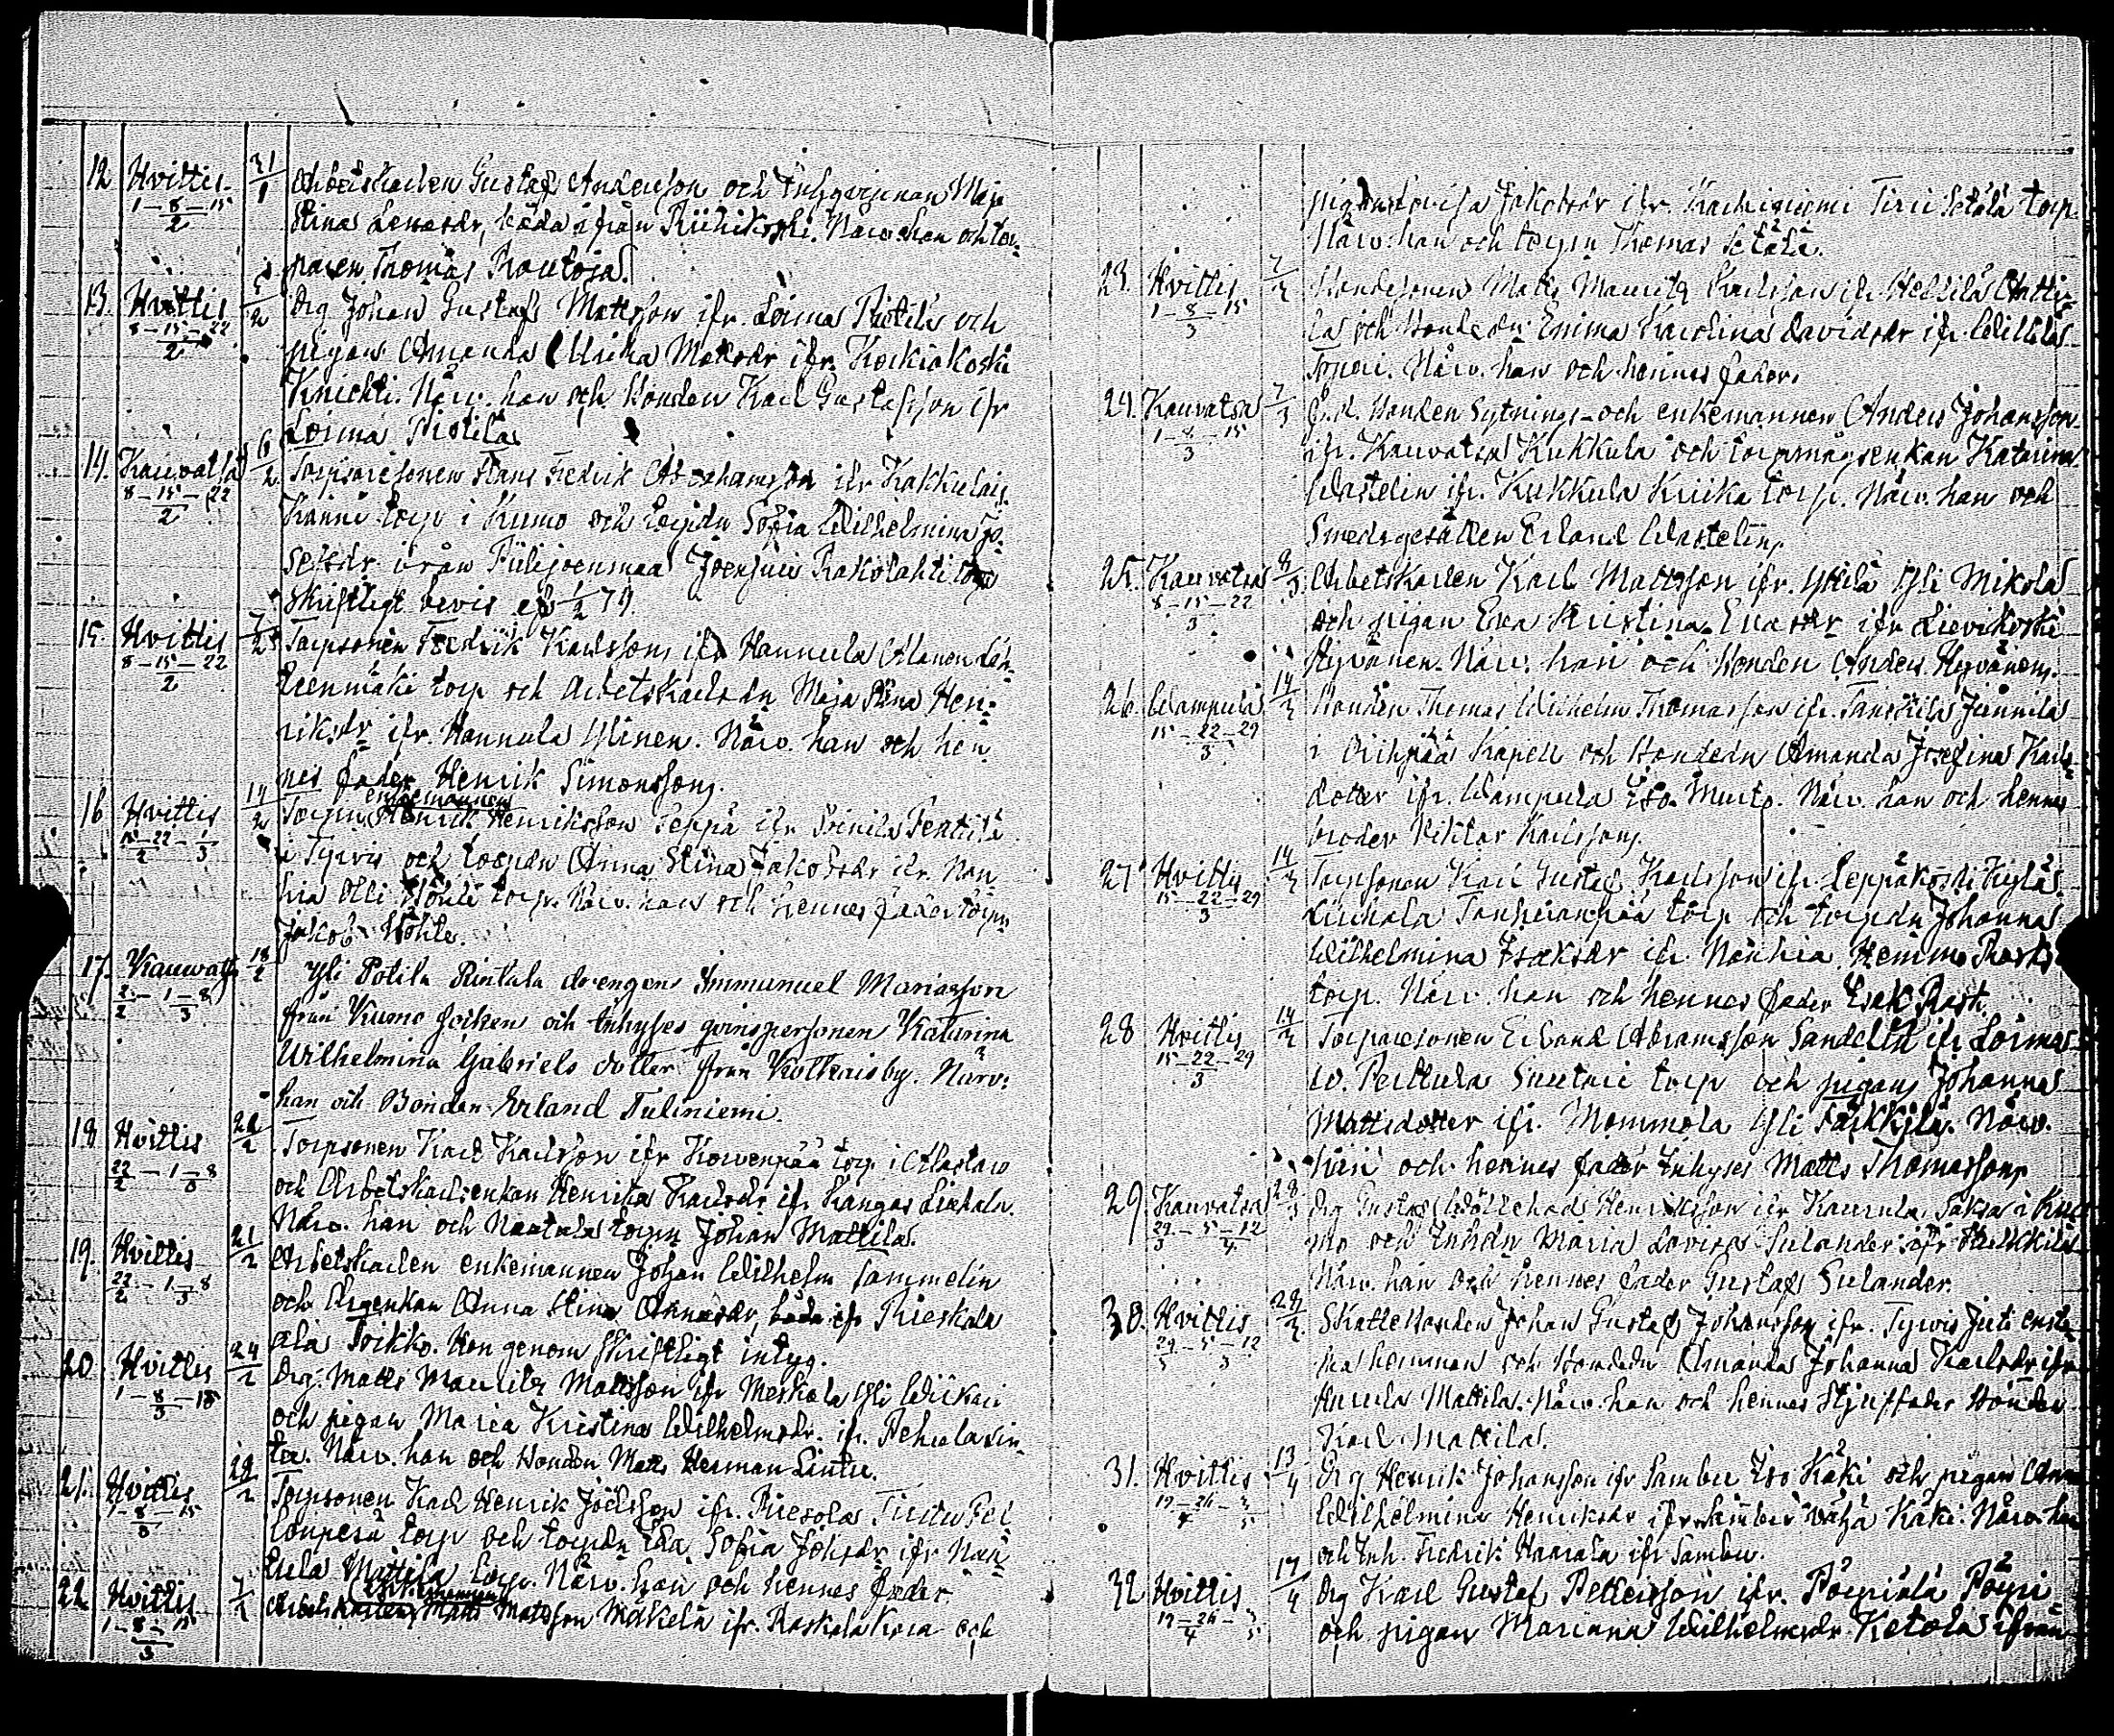 12 Hvittis 31/1 Arbetskarlen Gustaf Andersson och Inhyqvinnan Maja
1–8–15/2 Stina Lenasdr, båda ifrån Riihikoski. Närv. han och tor-
paren Thomas Rautoja.
13. Hvittis /2 Drg Johan Gustaf Mattsson ifr. Loima Pietilä och
8–15–22/2 pigan Amanda Ulrika Matsdr ifr. Korkiakoski
Knichti. Närv. han och Bonden Karl Gustafsson ifr
Loima Pietilä
14. Kauvatsa 6/2 Torparesonen Frans Fredrik Abrahamsson ifr Kakkulais
8–15–22/2 Känni torp i Kumo och torpdr Sofia Wilhelmina Jo-
sefsdr ifrån Piilijoenmaa Joensuu Rakolahti torp
Skriftligt bevis af 1/2 79.
15. Hvittis 7/2 Torpsonen Fredrik Karlsson ifr Hannula
8–15–22/2 torp och Arbetskarlsdr Maja Stina Hen-
riksdr ifr. Hannula Ylinen. Närv. han och hen
nes fader Henrik Simonsson.
16 Hvittis 14/2 Torpn enkemannen Henrik Henriksson Seppä ifr Pentilä
15–22/2–1/3 i Tyrvis och torpdr Anna Stina Jakobsdr ifr. Nan
hia Olli torp. Närv. han och hennes fader torpn
Jakob
17. Kauwatsa 18/2 Yli Potila Rintala drengen Immanuel Mariasson
2/2–1–8/3 från Kumo socken och inhyses qvinspersonen Katarina
Wilhelmina Gabriels dotter från Kulkkaisby. Närv:
han och Bonden Erland Tuliniemi.
18. Hvittis 20/2 Torpsonen Karl Karlsson ifr Korvenpää torp i Alastaro
22/2–1–8/3 och Arbetskarlsenkan Henrika Karlsdr ifr Kangas Liehala.
Närv. han och torpn Johan Mattila.
19. Hvittis 21/2 Arbetskarlen enkemannen Johan Wilhelm Sammelin
22/2–1–8/3 och Drgenkan Anna Stina Annasdr, båda ifr Rieskala
ala Toikko. Hon genom skriftligt intyg.
20. Hvittis 24/2 Drg. Matts Maurits Mattsson ifr Meskala Yli Wickari
1–8–15/3 och pigan Maria Kristina Wilhelmsdr. ifr. Pehula Lin-
tu. Närv. han och Bonden Matts Herman Lintu.
21. Hvittis 29/2 Torpsonen Karl Henrik Joelsson ifr. Riesola
1–8–15/3 torp och torpdr Eva Sofia Johsdr ifr
Mattila torp. Närv. han och hennes fader.
22. Hvittis 7/2 Arbetskarlen Matts Mattsson Mäkelä ifr. Raskala Kera och
1–8–15/3
pigan Lovisa Jakobsdr ifr. Karhiniemi Setälä torp.
Närv: han och torpn Thomas Setälä.
23. Hvittis 7/2 Bondesonen Matts Maurits Karlsson ifr Heikilä Anttila
1–8–15/3 och Bondedr Emma Karolina Davidsdr ifr Willilä
Soperi. Närv. han och hennes fader.
24. Kauvatsa 7/3 F.d. Bonden Sytnings- och enkemannen Anders Johansson
1–8–15/3 ifr. Kauvatsa Kukkula och torpmågsenkan Katarina
Wastelin ifr. Kukkula Kriika torp. Närv. han och
Smedsgesällen Erland Wastelin.
25. Kauvatsa 8/3 Arbetskarlen Karl Mattsson ifr. Yttilä Yli Mikola
8–15–22/3 och pigan Eva Kristina Evasdr ifr Lievikoski
Hyvönen. Närv. han och Bonden Anders Hyvönen.
26. Wampula 14/3 Bonden Thomas Wilhelm Thomasson ifr. Junnila
15–22–29/3 i kapell och Bondedr Amanda Josefina Karls-
dotter ifr. Wampula Iso Murto. Närv. han och hennes
broder Viktor Karlsson.
27 Hvittis 14/3 Torpsonen Karl Gustaf Karlsson ifr. Leppäkoski Kylä
15–22–29/3 torp och torpdr Johanna
Wilhelmina Isaksdr ifr. Nanhia Hemmo Rask
torp. Närv. han och hennes fader Isak Rask.
28 Hvittis 14/2 Torparesonen Erland Abramsson Sandelin ifr Loima
15–22–29/3 torp och pigan Johanna
Mattsdotter ifr. Mommola Yli Närv.
han och hennes fader Inhyses Matts Thomasson.
29. Kauvatsa 28/3 Drg Gustaf Wollehad Henriksson ifr Kaurula, Saksa i Ku-
29/3–5–12/4 mo och Inhdr Maria Lovisa Sulander ifr Kukkula
Närv. han och hennes fader Gustaf Sulander.
30. Hvittis 29/2 Skattebonden Johan Gustaf Johansson ifr. Tyrvis Juti ensta-
29–5–12 ka hemman och bondedr Amanda Johanna Karlsdr ifr
Hurula Mattila. Närv. han och hennes Stjuffader Bonden
Karl Mattila.
31. Hvittis 13/4 Drg Henrik Johansson ifr Sambu Iso Käki och pigan Anna
19–26/4–3/5 Wilhelmina Henriksdr ifr Sambu Vähä Käki. Närv. han
och Inh. Fredrik Haarala ifr Sambu.
32 Hvittis 17/4 Drg Karl Gustaf Pettersson ifr. Pöyriälä Pöyri
19–26/4–3/5 och pigan Mariana Wilhelmsdr Ketola ifrån